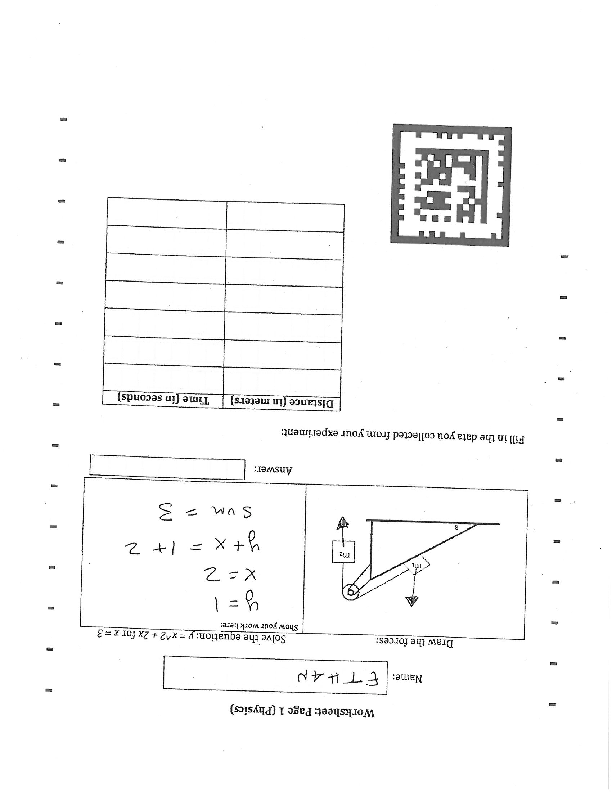 Worksheet: Page 1 (Physics)
Name: ETHAN
Draw the forces:
m₁
m₂
θ
Solve the equation: y = x^2 + 2x for x = 3
Show your work here:
y = 1
x = 2
y + x = 1 + 2
sum = 3
Answer:
Fill in the data you collected from your experiment:
Distance (in meters) Time (in seconds)